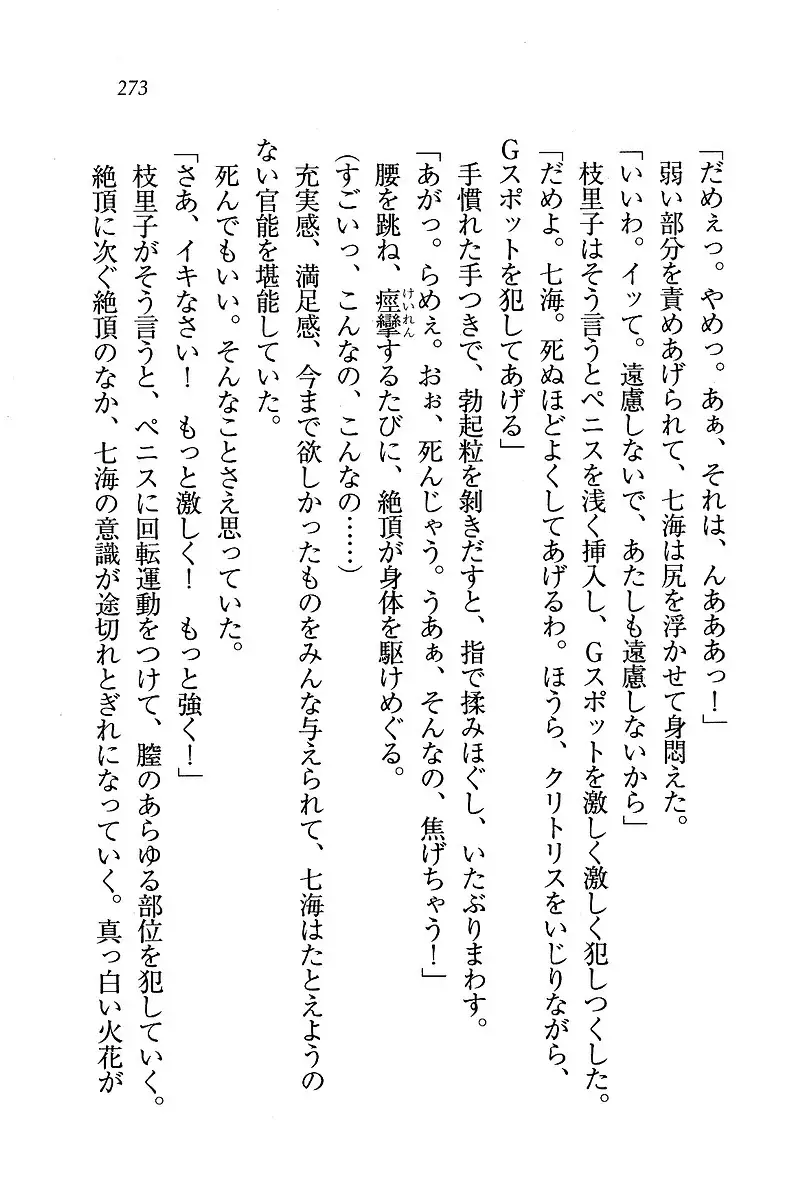 273
「だめぇっ。やめっ。あぁ、それは、んあああっ！」
弱い部分を責めあげられて、七海は尻を浮かせて身悶えた。
「いいわ。イッて。遠慮しないで、あたしも遠慮しないから」
枝里子はそう言うとペニスを浅く挿入し、Gスポットを激しく激しく犯しつくした。
「だめよ。七海。死ぬほどよくしてあげるわ。ほうら、クリトリスをいじりながら、
Gスポットを犯してあげる」
手慣れた手つきで、勃起粒を剝きだすと、指で揉みほぐし、いたぶりまわす。
「あがっ。らめぇ。おぉ、死んじゃう。うあぁ、そんなの、焦げちゃう！」
腰を跳ね、痙攣するたびに、絶頂が身体を駆けめぐる。
けいれん
(すごいっ、こんなの、こんなの……)
充実感、満足感、今まで欲しかったものをみんな与えられて、七海はたとえようの
ない官能を堪能していた。
死んでもいい。そんなことさえ思っていた。
「さあ、イキなさい！　もっと激しく！　もっと強く！」
枝里子がそう言うと、ペニスに回転運動をつけて、膣のあらゆる部位を犯していく。
絶頂に次ぐ絶頂のなか、七海の意識が途切れとぎれになっていく。真っ白い火花が